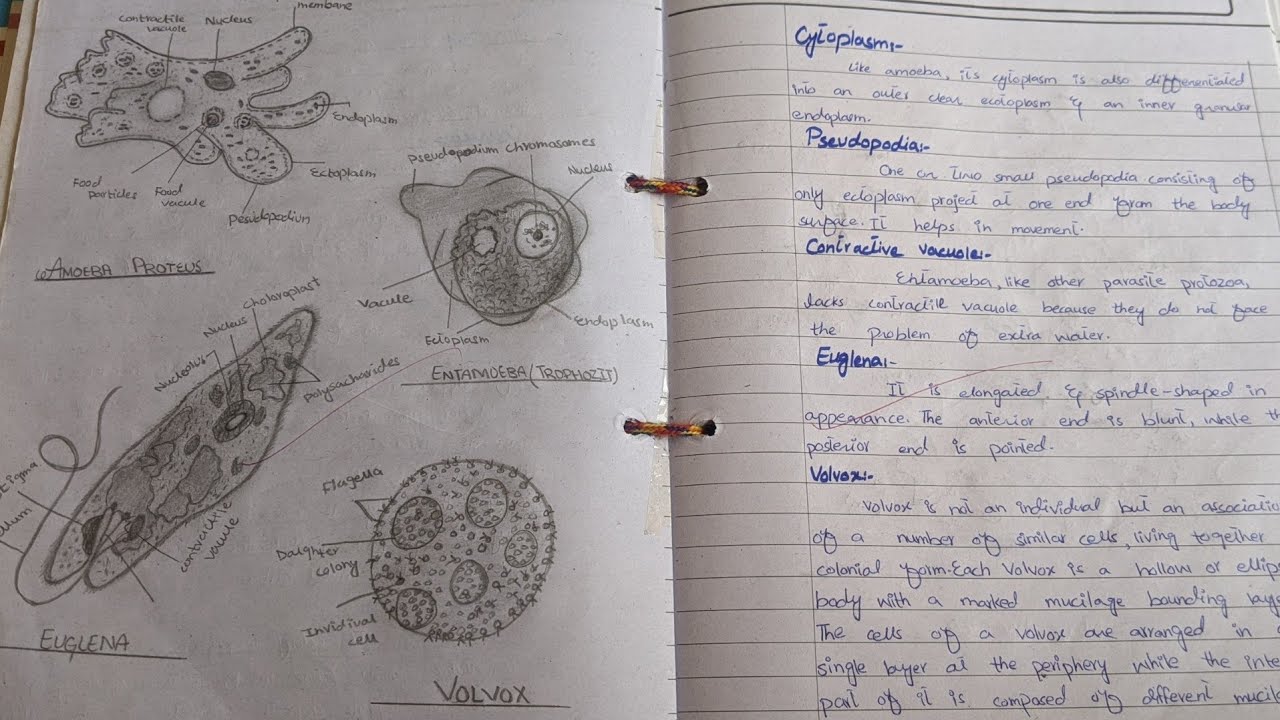 membrane
contractile
vacuole
Nucleus
Endoplasm
Ectoplasm
Food
particles
Food
vacuole
Pesudopodium
AMOEBA PROTEUS
Pseudopodium
Chromasomes
Nucleus
Vacule
Ectoplasm
Endoplasm
ENTAMOEBA (TROPHOZIT)
Choloroplast
Nucleus
Nucleolus
polysachorides
contractile
vacuole
EUGLENA
Flagella
Daughter
colony
Invidival
cell
VOLVOX
Cytoplasm:-
Like amoeba, its cytoplasm is also differentiated
into an outer clear ectoplasm & an inner granular
endoplasm.
Pseudopodia:-
One or two small pseudopodia consisting of
only ectoplasm project at one end from the body
surface. It helps in movement.
Contractive vacuole:-
Entamoeba, like other parasite protozoa,
lacks contractile vacuole because they do not face
the problem of extra water.
Euglena:-
It is elongated & spindle-shaped in
appearance. The anterior end is blunt, while the
posterior end is pointed.
Volvox:-
Volvox is not an individual but an associatio
of a number of similar cells, living together
colonial form. Each Volvox is a hollow or ellips
body with a marked mucilage bounding laye
The cells of a volvox are arranged in
single layer at the periphery while the inte
part of it is composed of different mucil